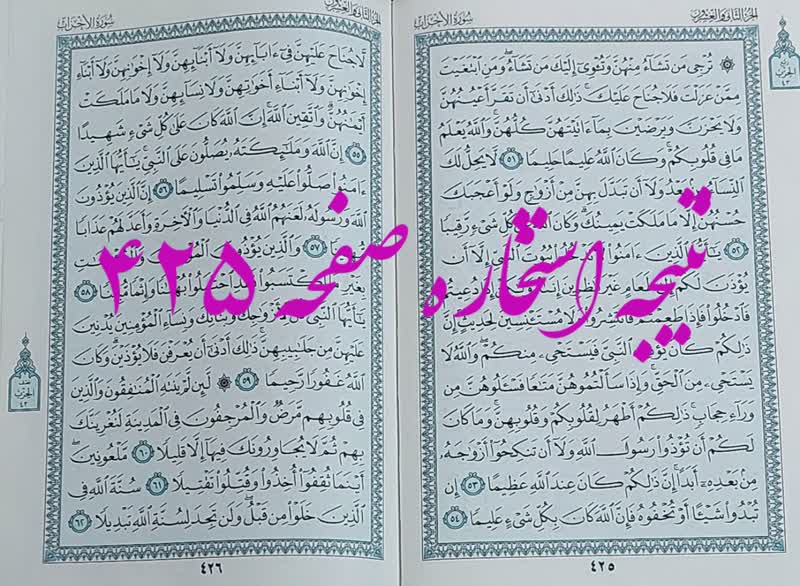 الجزء الثاني والعشرون
سورة الأحزاب
۞ تُرْجِى مَن تَشَآءُ مِنْهُنَّ وَتُـْٔوِىٓ إِلَيْكَ مَن تَشَآءُ ۖ وَمَنِ ٱبْتَغَيْتَ
مِمَّنْ عَزَلْتَ فَلَا جُنَاحَ عَلَيْكَ ۚ ذَٰلِكَ أَدْنَىٰٓ أَن تَقَرَّ أَعْيُنُهُنَّ
وَلَا يَحْزَنَّ وَيَرْضَيْنَ بِمَآ ءَاتَيْتَهُنَّ كُلُّهُنَّ ۚ وَٱللَّهُ يَعْلَمُ
مَا فِى قُلُوبِكُمْ ۚ وَكَانَ ٱللَّهُ عَلِيمًا حَلِيمًا ٥١ لَّا يَحِلُّ لَكَ
ٱلنِّسَآءُ مِنۢ بَعْدُ وَلَآ أَن تَبَدَّلَ بِهِنَّ مِنْ أَزْوَٰجٍ وَلَوْ أَعْجَبَكَ
حُسْنُهُنَّ إِلَّا مَا مَلَكَتْ يَمِينُكَ ۗ وَكَانَ ٱللَّهُ عَلَىٰ كُلِّ شَىْءٍ رَّقِيبًا
٥٢ يَٰٓأَيُّهَا ٱلَّذِينَ ءَامَنُوا۟ لَا تَدْخُلُوا۟ بُيُوتَ ٱلنَّبِىِّ إِلَّآ أَن
يُؤْذَنَ لَكُمْ إِلَىٰ طَعَامٍ غَيْرَ نَٰظِرِينَ إِنَىٰهُ وَلَٰكِنْ إِذَا دُعِيتُمْ
فَٱدْخُلُوا۟ فَإِذَا طَعِمْتُمْ فَٱنتَشِرُوا۟ وَلَا مُسْتَـْٔنِسِينَ لِحَدِيثٍ ۚ إِنَّ
ذَٰلِكُمْ كَانَ يُؤْذِى ٱلنَّبِىَّ فَيَسْتَحْىِۦ مِنكُمْ ۖ وَٱللَّهُ لَا
يَسْتَحْىِۦ مِنَ ٱلْحَقِّ ۚ وَإِذَا سَأَلْتُمُوهُنَّ مَتَٰعًا فَسْـَٔلُوهُنَّ مِن
وَرَآءِ حِجَابٍ ۚ ذَٰلِكُمْ أَطْهَرُ لِقُلُوبِكُمْ وَقُلُوبِهِنَّ ۚ وَمَا كَانَ
لَكُمْ أَن تُؤْذُوا۟ رَسُولَ ٱللَّهِ وَلَآ أَن تَنكِحُوٓا۟ أَزْوَٰجَهُۥ
مِنۢ بَعْدِهِۦٓ أَبَدًا ۚ إِنَّ ذَٰلِكُمْ كَانَ عِندَ ٱللَّهِ عَظِيمًا ٥٣ إِن
تُبْدُوا۟ شَيْـًٔا أَوْ تُخْفُوهُ فَإِنَّ ٱللَّهَ كَانَ بِكُلِّ شَىْءٍ عَلِيمًا ٥٤
٤٢٥
الجزء الثاني والعشرون
سورة الأحزاب
لَّا جُنَاحَ عَلَيْهِنَّ فِىٓ ءَابَآئِهِنَّ وَلَآ أَبْنَآئِهِنَّ وَلَآ إِخْوَٰنِهِنَّ وَلَآ أَبْنَآءِ
إِخْوَٰنِهِنَّ وَلَآ أَبْنَآءِ أَخَوَٰتِهِنَّ وَلَا نِسَآئِهِنَّ وَلَا مَا مَلَكَتْ
أَيْمَٰنُهُنَّ ۗ وَٱتَّقِينَ ٱللَّهَ ۚ إِنَّ ٱللَّهَ كَانَ عَلَىٰ كُلِّ شَىْءٍ شَهِيدًا
٥٥ إِنَّ ٱللَّهَ وَمَلَٰٓئِكَتَهُۥ يُصَلُّونَ عَلَى ٱلنَّبِىِّ ۚ يَٰٓأَيُّهَا ٱلَّذِينَ
ءَامَنُوا۟ صَلُّوا۟ عَلَيْهِ وَسَلِّمُوا۟ تَسْلِيمًا ٥٦ إِنَّ ٱلَّذِينَ يُؤْذُونَ
ٱللَّهَ وَرَسُولَهُۥ لَعَنَهُمُ ٱللَّهُ فِى ٱلدُّنْيَا وَٱلْءَاخِرَةِ وَأَعَدَّ لَهُمْ عَذَابًا
مُّهِينًا ٥٧ وَٱلَّذِينَ يُؤْذُونَ ٱلْمُؤْمِنِينَ وَٱلْمُؤْمِنَٰتِ
بِغَيْرِ مَا ٱكْتَسَبُوا۟ فَقَدِ ٱحْتَمَلُوا۟ بُهْتَٰنًا وَإِثْمًا مُّبِينًا ٥٨
يَٰٓأَيُّهَا ٱلنَّبِىُّ قُل لِّأَزْوَٰجِكَ وَبَنَاتِكَ وَنِسَآءِ ٱلْمُؤْمِنِينَ يُدْنِينَ
عَلَيْهِنَّ مِن جَلَٰبِيبِهِنَّ ۚ ذَٰلِكَ أَدْنَىٰٓ أَن يُعْرَفْنَ فَلَا يُؤْذَيْنَ ۗ وَكَانَ
ٱللَّهُ غَفُورًا رَّحِيمًا ٥٩ ۞ لَّئِن لَّمْ يَنتَهِ ٱلْمُنَٰفِقُونَ وَٱلَّذِينَ
فِى قُلُوبِهِم مَّرَضٌ وَٱلْمُرْجِفُونَ فِى ٱلْمَدِينَةِ لَنُغْرِيَنَّكَ
بِهِمْ ثُمَّ لَا يُجَاوِرُونَكَ فِيهَآ إِلَّا قَلِيلًا ٦٠ مَّلْعُونِينَ ۖ
أَيْنَمَا ثُقِفُوٓا۟ أُخِذُوا۟ وَقُتِّلُوا۟ تَقْتِيلًا ٦١ سُنَّةَ ٱللَّهِ فِى
ٱلَّذِينَ خَلَوْا۟ مِن قَبْلُ ۖ وَلَن تَجِدَ لِسُنَّةِ ٱللَّهِ تَبْدِيلًا ٦٢
٤٢٦
نتیجه استخاره صفحه ۴۲۵